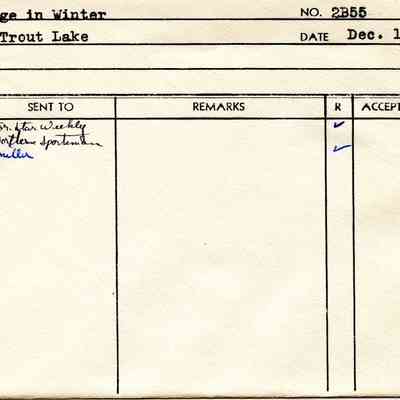 ge in Winter NO. 2B55
Trout Lake DATE Dec. 1
SENT TO REMARKS R ACCEPT
Star Weekly ✓
Northern Sportsman ✓
miller